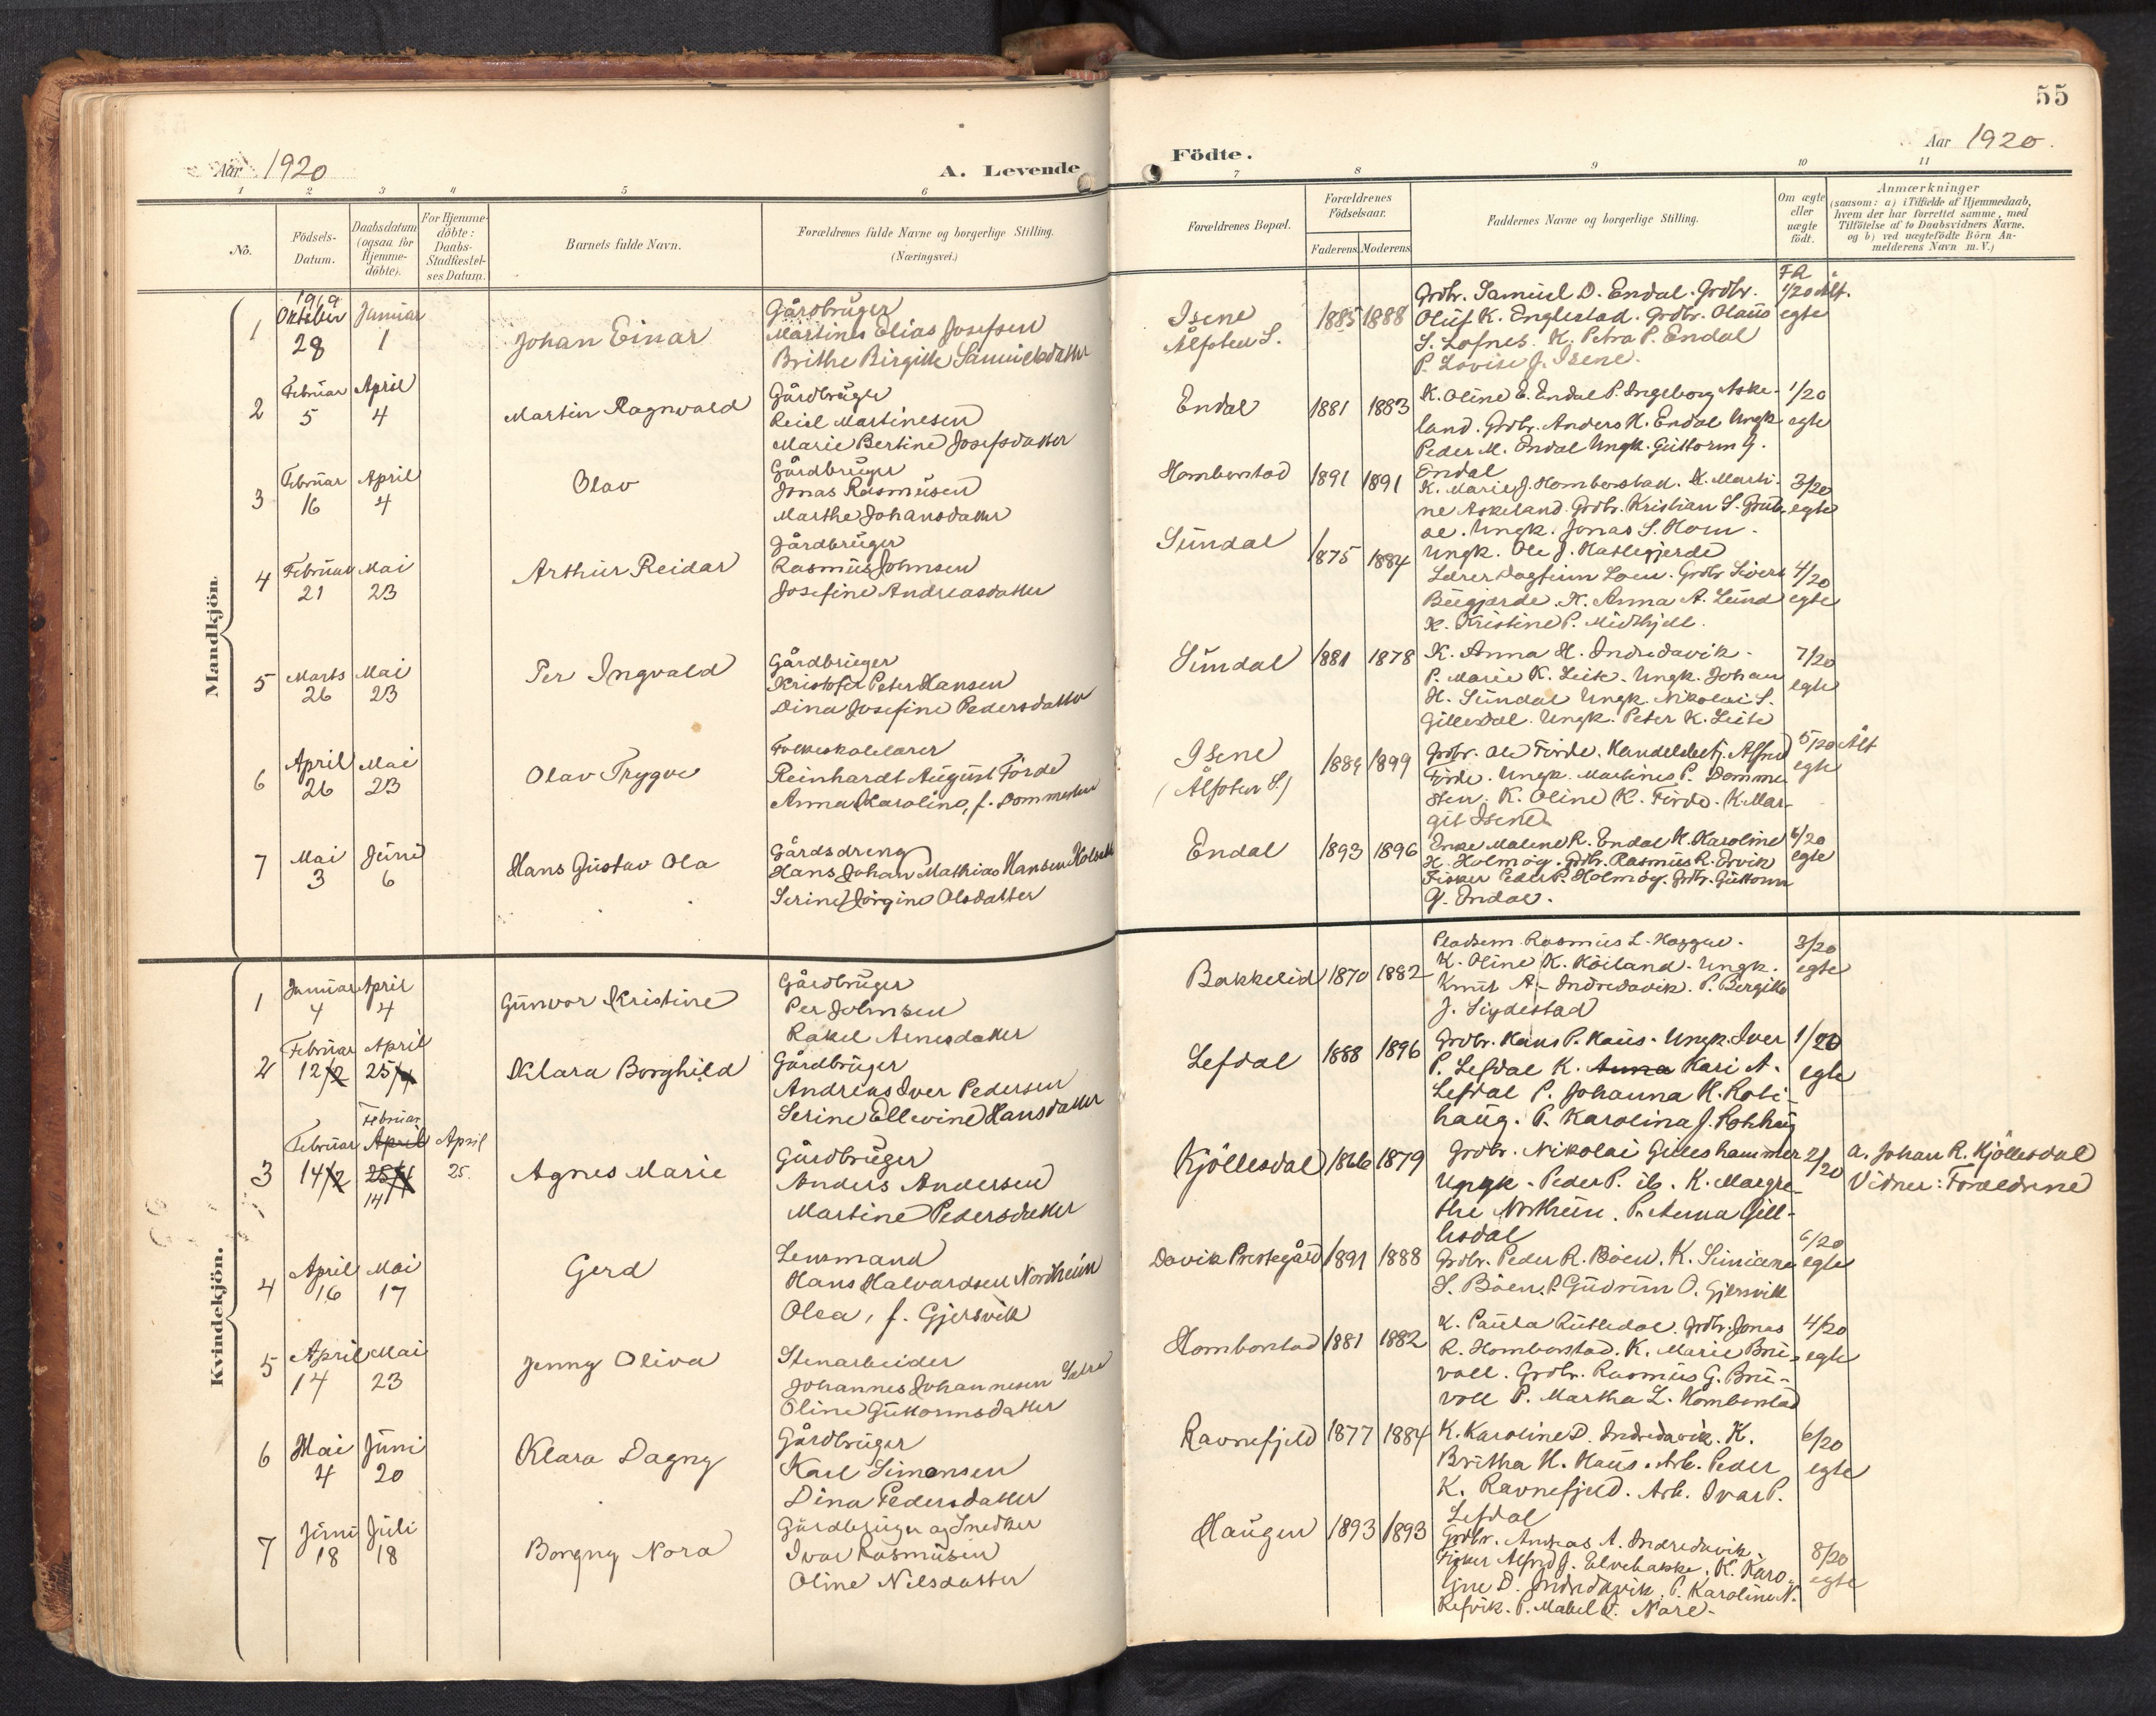 55
Aar 1920
A. Levende
Födte.
Aar 1920.
1 2 3 4 5 6 7 8 9 10 11
No.
Födsels-
Datum.
Daabsdatum
(ogsaa for
Hjemme-
döbte).
For Hjemme-
döbte:
Daabs-
Stadfæstel-
ses Datum.
Barnets fulde Navn.
Forældrenes fulde Navne og borgerlige Stilling.
(Næringsvei.)
Forældrenes Bopæl.
Forældrenes
Födselsaar.
Faderens. Moderens.
Faddernes Navne og borgerlige Stilling.
Om ægte
eller
uægte
født.
Anmærkninger
(saasom: a) i Tilfælde af Hjemmedaab,
hvem der har forrettet samme, med
Tilföielse af to Daabsvidners Navne.
og b) ved uægtefödte Börn An-
melderens Navn m. V.)
Mandkjön.
1
1919
Oktober
28
Januar
1
Johan Einar
Gårdbruger
Martines Elias Josefsen
Brithe Birgitte Samuelsdatter
Isene
Ålfoten S.
1885 1888
Grdbr. Samuel D. Endal. Grdbr.
Oluf K. Englestad. Grdbr. Olaus
S. Lofnes. K. Petra P. Endal
P. Lovise J. Isene.
FR
1/20 Ålf.
egte
2
Februar
5
April
4
Martin Ragnvald
Gårdbruger
Reiel Martinesen
Marie Bertine Josefsdatter
Endal
1881 1883
K. Oline E. Endal P. Ingeborg Aske-
land. Grdbr. Anders K. Endal Ungk.
Peder M. Endal Ungk. Guttorm G.
Endal
1/20
egte
3
Februar
16
April
4
Olav
Gårdbruger
Jonas Rasmusen
Marthe Johansdatter
Homborstad
1891 1891
K. Marie J. Homborstad. K. Marti-
ne Askeland. Grdbr. Kristian S.
Ungk. Jonas S. Hom.
Ungk. Ole J. Haslegjerde
3/20
egte
4
Februar
21
Mai
23
Arthur Reidar
Gårdbruger
Rasmus Johnsen
Josefine Andreasdatter
Sundal
1875 1884
Lærer Dagfinn Loen. Grdbr Sivert
Buegjærde. K. Anna A. Lund
K. Kristine P. Midthjell.
4/20
egte
5
Marts
26
Mai
23
Per Ingvald
Gårdbruger
Kristofer Peter Hansen
Dina Josefine Pedersdatter
Sundal
1881 1878
K. Anna H. Indredavik.
P. Marie K. Leite. Ungk. Johan
H. Sundal Ungk. Nikolai S.
Gillesdal. Ungk. Peter K. Leite
7/20
egte
6
April
26
Mai
23
Olav Trygve
Folkeskolelærer
Reinhardt August Förde
Anna Karoline, f. Dommesten
Isene
(Ålfoten S.)
1889 1899
Grdbr. Ole Förde. Handelsbetj. Alfred
Förde. Ungk. Martines P. Domme
sten. K. Oline K. Förde. K. Mar-
git Isene.
5/20 Ålf
egte
7
Mai
3
Juni
6
Hans Gustav Ola
Gårdsdreng
Hans Johan Mathias Hansen Holsete
Serine Jörgine Olsdatter
Endal
1893 1896
Enke Malene R. Endal K. Karoline
H. Holmöy. Grdbr. Rasmus R. Ervik
Fisker Peder P. Holmöy. Grdbr. Guttorm
G. Endal.
6/20
egte
Kvindekjön.
1
Januar
4
April
4
Gunvor Kristine
Gårdbruger
Per Johnsen
Rakel Arnesdatter
Bakkelid
1870 1882
Pladsem. Rasmus L. Haggul.
K. Oline K. Röiland. Ungk.
Knut A. Indredavik. P. Bergitte
J. Sigdestad
3/20
egte
2
Februar
12/2
April
25/4
Klara Borghild
Gårdbruger
Andreas Iver Pedersen
Serine Ellevine Hansdatter
Lefdal
1888 1896
Grdbr. Hans P. Haus. Ungk. Iver
P. Lefdal K. Anna Kari A.
Lefdal P. Johanna K. Roti-
haug. P. Karolina J. Rothaug
1/20
egte
3
Februar
14/2
Februar
April
25/4
14
April
25.
Agnes Marie
Gårdbruger
Anders Andersen
Martine Pedersdatter
Kjöllesdal
1866 1879
Grdbr. Nikolai Gilleshammer
Ungk. Peder P. ib. K. Margre-
the Northeim. P. Anna Gill-
lesdal
2/20
a. Johan R. Kjöllesdal
Vidner: Forældrene
4
April
16
Mai
17
Gerd
Lensmand
Hans Halvardsen Nordheim
Olea, f. Gjersvik
Davik Prestegård
1891 1888
Grdbr. Peder R. Böen. K. Simiane
S. Böen. P. Gudrun O. Gjersvik
6/20
egte
5
April
14
Mai
23
Jenny Oliva
Stenarbeider
Johannes Johannesen Sætre
Oline Guttormsdatter
Homborstad
1881 1882
K. Paula Rutledal. Grdbr. Jonas
R. Homborstad. K. Marie Bru-
voll. Grdbr. Rasmus G. Bru-
voll P. Martha L. Homborstad
4/20
egte
6
Mai
4
Juni
20
Klara Dagny
Gårdbruger
Karl Simonsen
Dina Pedersdatter
Ravnefjeld
1877 1884
K. Karoline D. Indredavik. K.
Britha H. Haus. Arb. Peder
K. Ravnefjeld. Arb. Ivar P.
Lefdal
6/20
egte
7
Juni
18
Juli
18
Borgny Nora
Gårdbruger og Snedker
Ivar Rasmusen
Oline Nilsdatter
Haugen
1893 1893
Grdbr. Andreas A. Indredavik.
Fisker Alfred J. Elvebakke. K. Karo-
line D. Indredavik. P. Karoline N.
Refvik. P. Mabel O. Nore.
8/20
egte